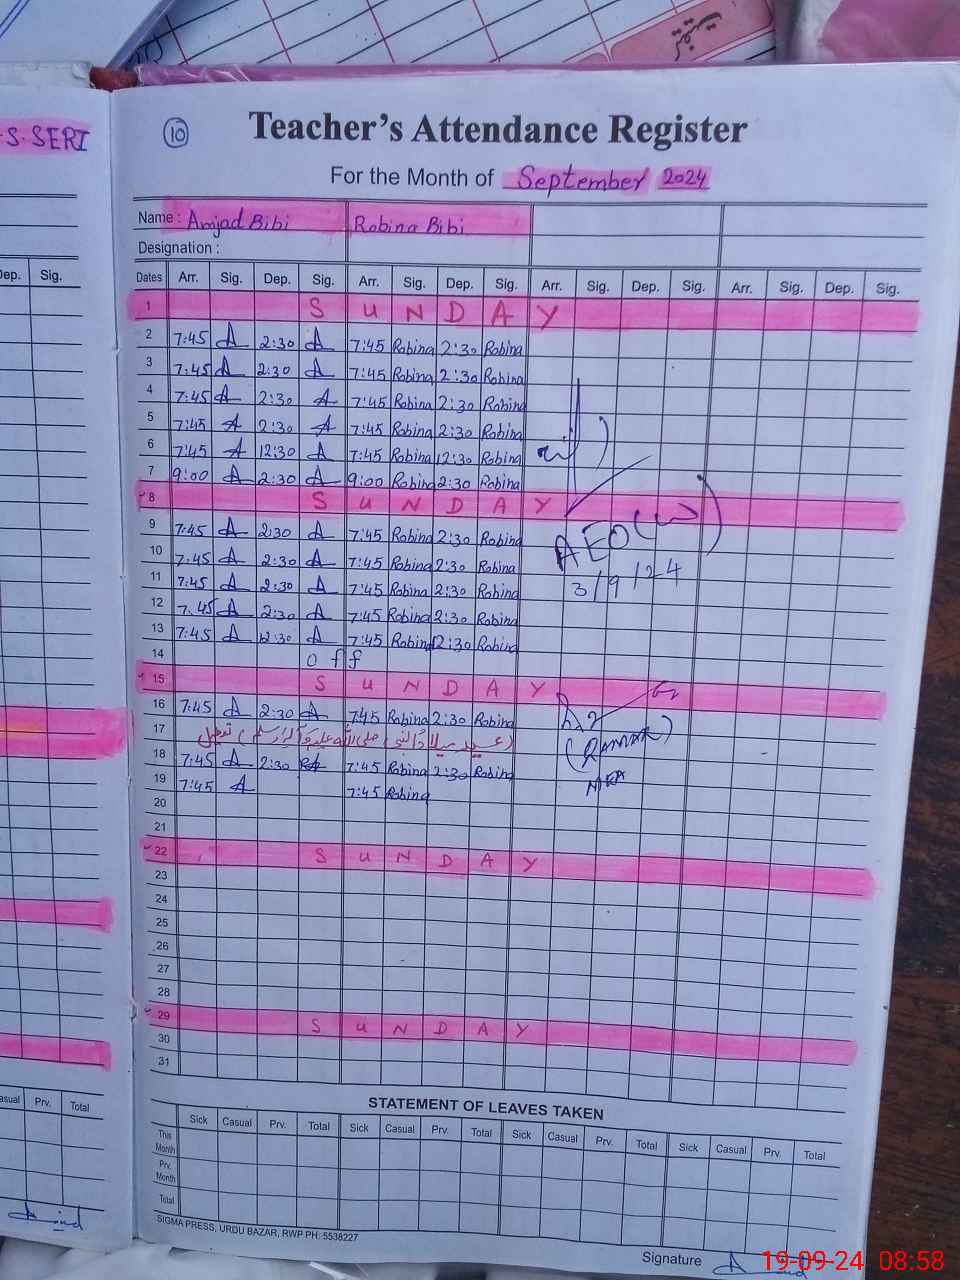 S.SERI
10
Teacher's Attendance Register
For the Month of September 2024
Name : Amjad Bibi Robina Bibi
Designation :
Dep. Sig.
Dates Arr. Sig. Dep. Sig. Arr. Sig. Dep. Sig. Arr. Sig. Dep. Sig. Arr. Sig. Dep. Sig.
1 S U N D A Y
2 7:45 A 2:30 A 7:45 Robina 2:30 Robina
3 7:45 A 2:30 A 7:45 Robina 2:30 Robina
4 7:45 A 2:30 A 7:45 Robina 2:30 Robina
5 7:45 A 2:30 A 7:45 Robina 2:30 Robina
6 7:45 A 12:30 A 7:45 Robina 12:30 Robina
7 9:00 A 2:30 A 9:00 Robina 2:30 Robina
8 S U N D A Y
AEO(W)
9 7:45 A 2:30 A 7:45 Robina 2:30 Robina
10 7:45 A 2:30 A 7:45 Robina 2:30 Robina
3/9/24
11 7:45 A 2:30 A 7:45 Robina 2:30 Robina
12 7:45 A 2:30 A 7:45 Robina 2:30 Robina
13 7:45 A 12:30 A 7:45 Robina 12:30 Robina
14 off
15 S U N D A Y
16 7:45 A 2:30 A 7:45 Robina 2:30 Robina
17 (عید میلاد النبی صلی اللہ علیہ وآلہ وسلم) تعطیل
18 7:45 A 2:30 7:45 Robina 2:30 Robina
19 7:45 A 7:45 Robina
20
21
22 S U N D A Y
23
24
25
26
27
28
29 S U N D A Y
30
31
Casual Prv. Total
STATEMENT OF LEAVES TAKEN
Sick Casual Prv. Total Sick Casual Prv. Total Sick Casual Prv. Total Sick Casual Prv. Total
This Month
Prv. Month
Total
SIGMA PRESS, URDU BAZAR, RWP PH: 5538227
Signature
19-09-24 08:58